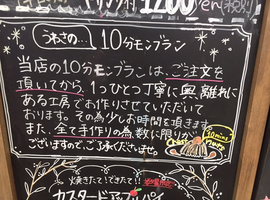 1200yen(税別)
うわさの…10分モンブラン
当店の10分モンブランは、ご注文を
頂いてから、1つひとつ丁寧に奥離れに
ある工房でお作りさせていただいて
おります。その為少しお時間を頂きます。
また、全て手作りの為数に限りが
ございますので、ご了承くださいませ。
10mins
焼きたて!できたて!!
カスタードアップルパイ